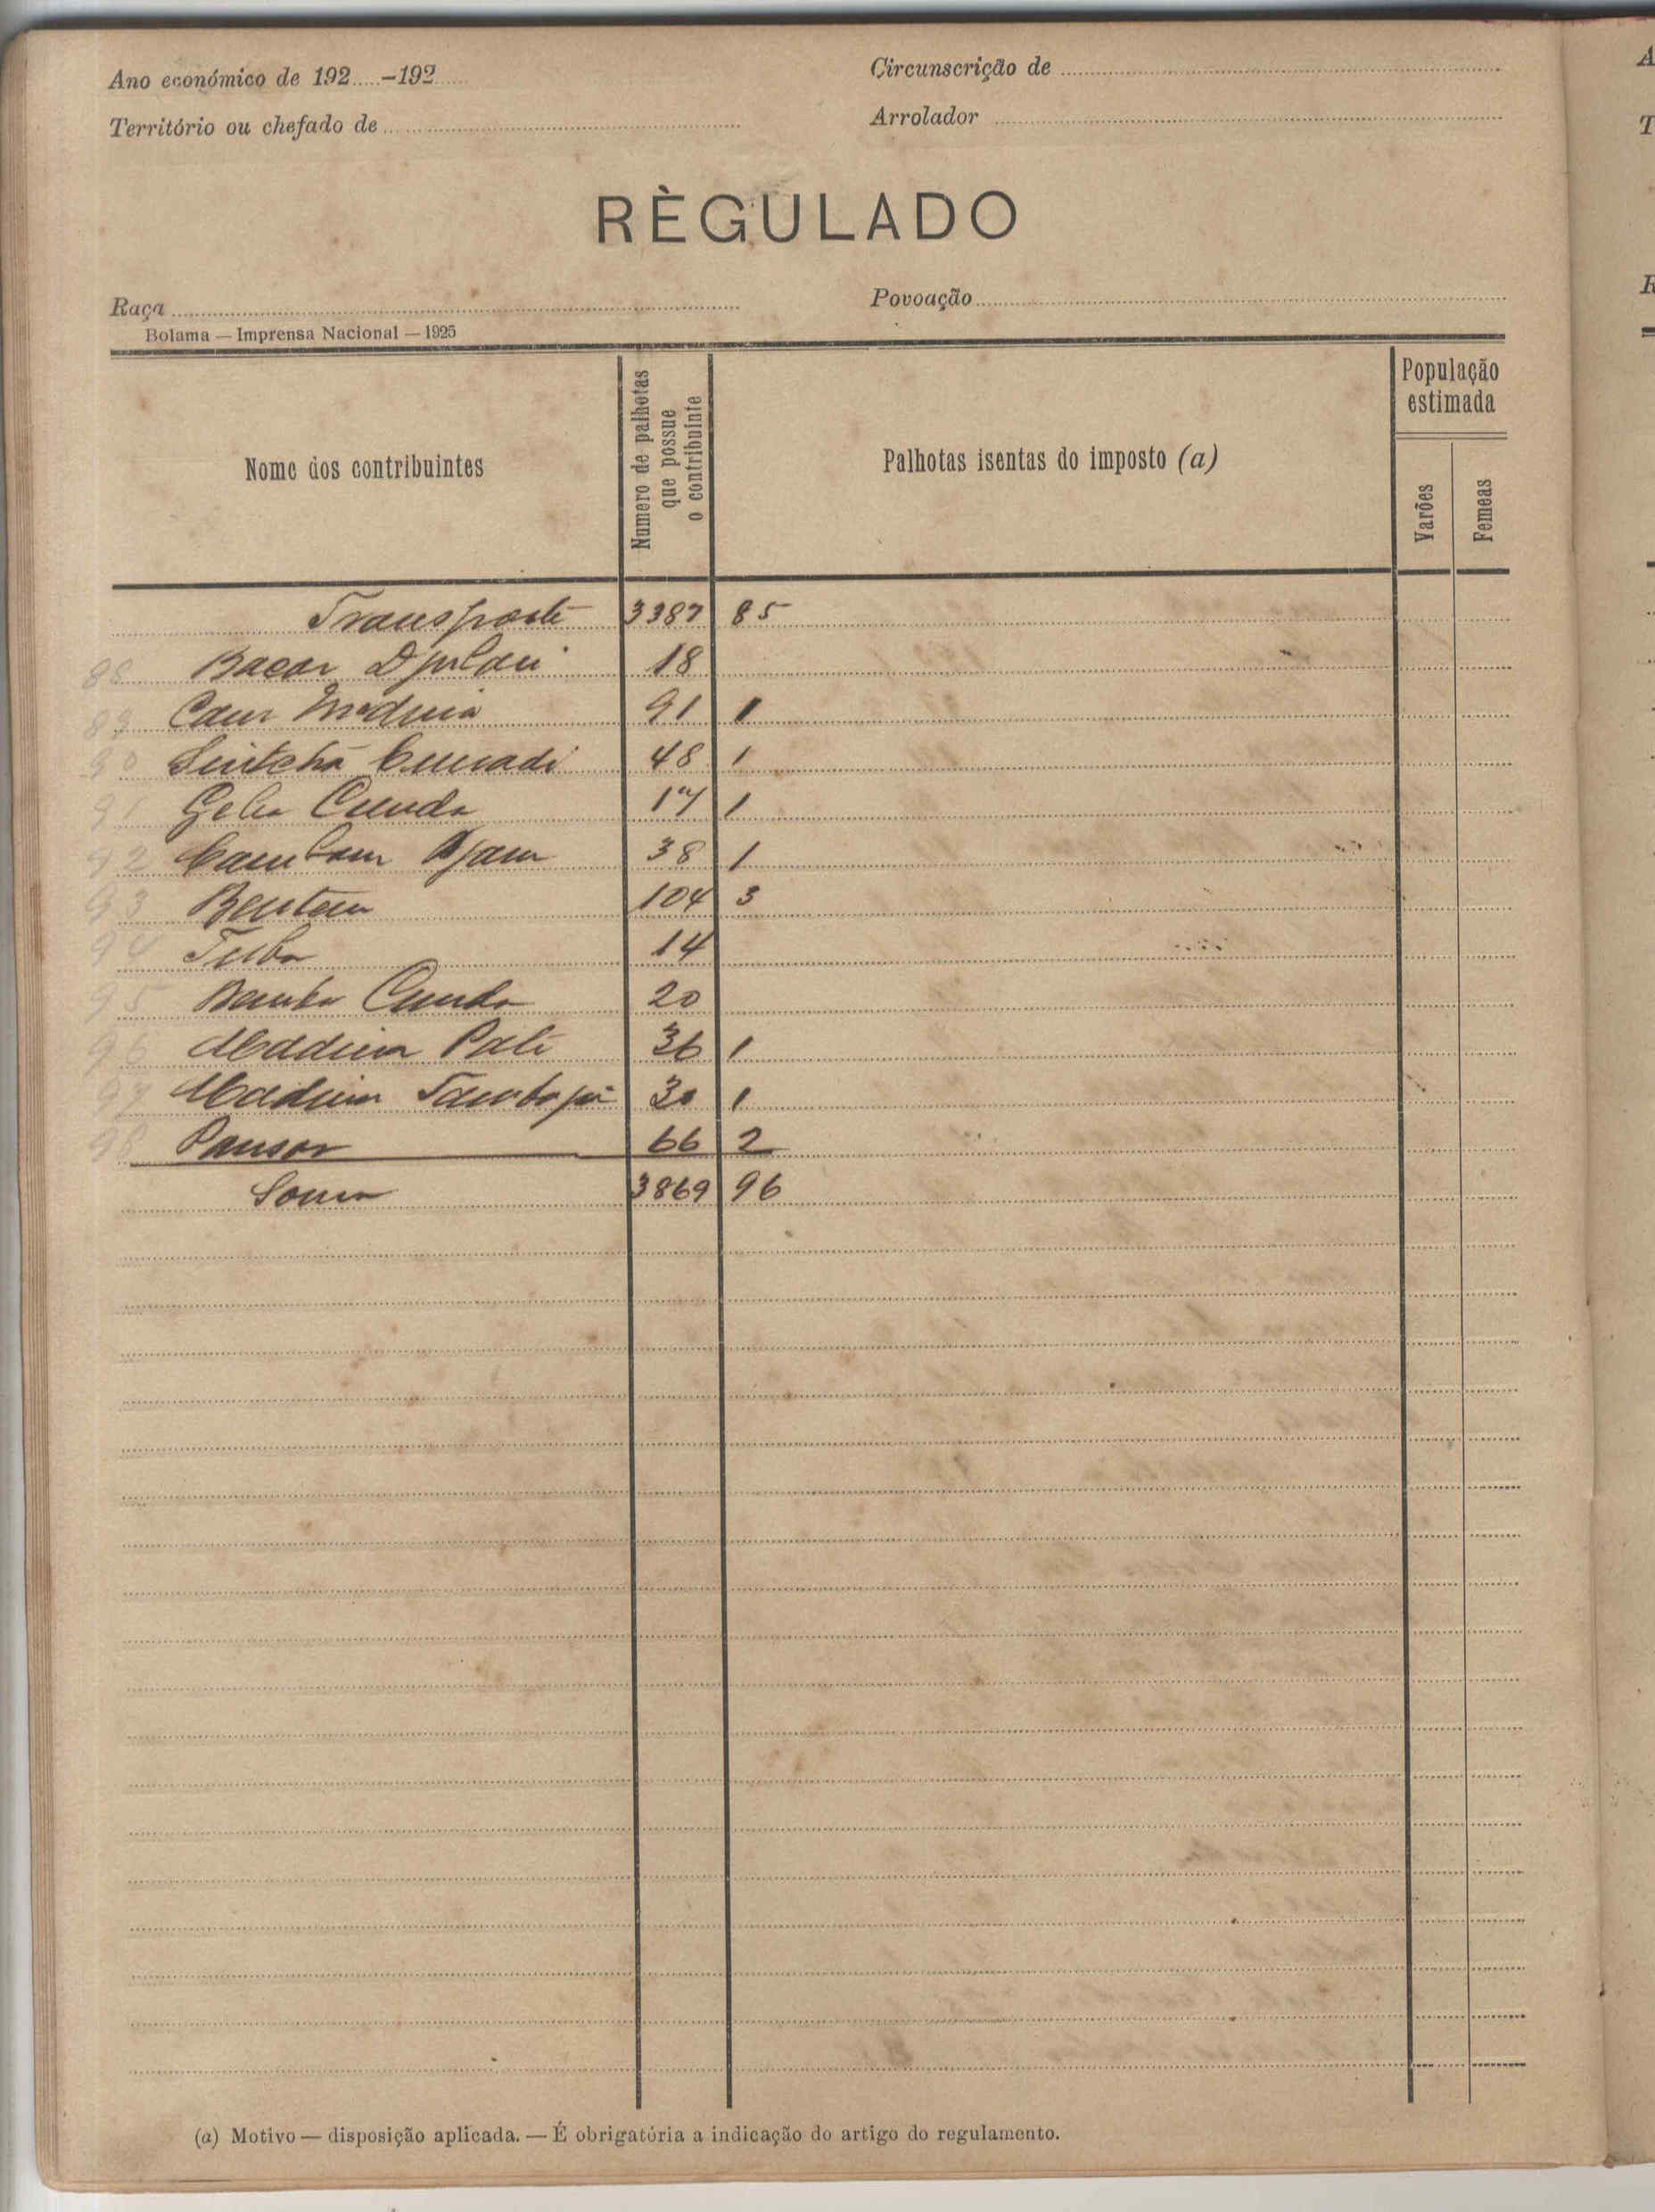 Ano económico de 192.....-192.....
Circunscrição de
Território ou chefado de
Arrolador
RÈGULADO
Raça
Povoação
Bolama — Imprensa Nacional — 1925
Nome dos contribuintes
Numero de palhotas que possue o contribuinte
Palhotas isentas do imposto (a)
População estimada
Varões
Femeas
Transporte 3387 85
88 Bacar Djuldi 18
89 Cam Madina 91 1
90 Sintchã 48 1
91 Geba Cunda 17 1
92 Cambam Djam 38 1
93 Bentem 104 3
94 14
95 Bamba Cunda 20
96 Madina Pali 36 1
97 Madina 30 1
98 Pansor 66 2
Soma 3869 96
(a) Motivo — disposição aplicada. — É obrigatória a indicação do artigo do regulamento.
A
T
R